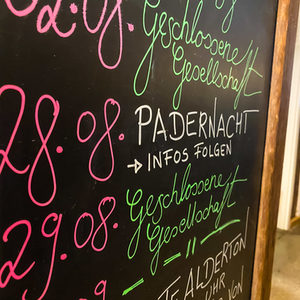 02.08. Geschlossene
Gesellschaft
28.08. PADERNACHT
→ INFOS FOLGEN
29.08. Geschlossene
Gesellschaft
- 11 -
ALDERTON
UHR
VON